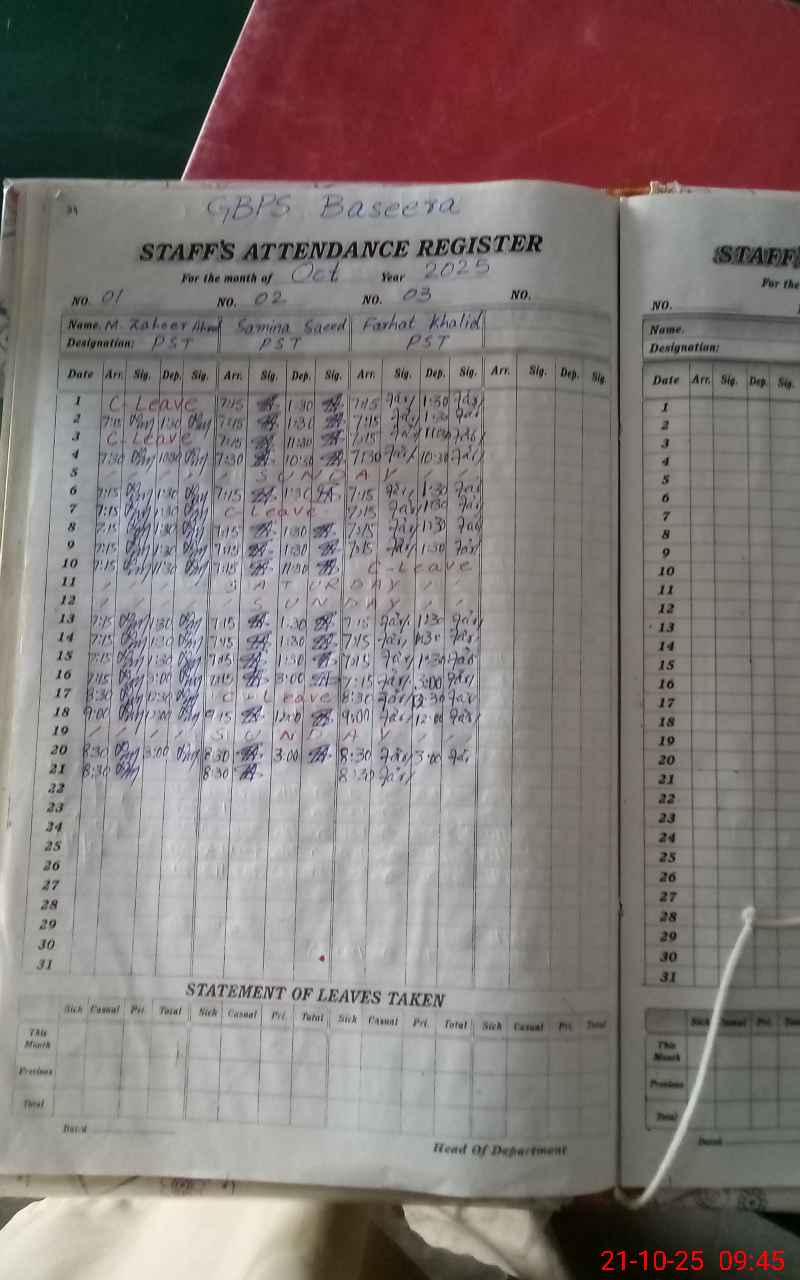 34
GBPS Baseera
STAFF'S ATTENDANCE REGISTER
For the month of Oct Year 2025
NO. 01 NO. 02 NO. 03 NO.
Name. M. Zaheer Ahmd Samina Saeed Farhat Khalid
Designation: PST PST PST
Date Arr. Sig. Dep. Sig. Arr. Sig. Dep. Sig. Arr. Sig. Dep. Sig. Arr. Sig. Dep. Sig.
1 C-Leave 7:15 1:30 7:15 1:30
2 7:15 1:30 7:15 1:30 7:15 1:30
3 C-Leave 7:15 11:30 7:15
4 7:30 10:30 7:30 10:30 7:30 10:30
5 SUNDAY
6 7:15 1:30 7:15 1:30 7:15 1:30
7 7:15 1:30 C-Leave 7:15 1:30
8 7:15 1:30 7:15 1:30 7:15 1:30
9 7:15 1:30 7:15 1:30 7:15 1:30
10 7:15 11:30 7:15 11:30 C-Leave
11 SATURDAY
12 SUNDAY
13 7:15 1:30 7:15 1:30 7:15 1:30
14 7:15 1:30 7:15 1:30 7:15 1:30
15 7:15 1:30 7:15 1:30 7:15 1:30
16 7:15 3:00 7:15 3:00 7:15 3:00
17 8:30 12:30 C-Leave 8:30 12:30
18 9:00 12:00 9:15 12:00 9:00 12:00
19 SUNDAY
20 8:30 3:00 8:30 3:00 8:30 3:00
21 8:30 8:30 8:30
22
23
24
25
26
27
28
29
30
31
STATEMENT OF LEAVES TAKEN
Sick Casual Pri. Total Sick Casual Pri. Total Sick Casual Pri. Total Sick Casual Pri. Total
This Month
Previous
Total
Dated
Head Of Department
STAFF'
For the
NO.
Name.
Designation:
Date Arr. Sig. Dep. Sig.
1
2
3
4
5
6
7
8
9
10
11
12
13
14
15
16
17
18
19
20
21
22
23
24
25
26
27
28
29
30
31
Sick Casual Pri. Total
This Month
Previous
Total
Dated
21-10-25 09:45